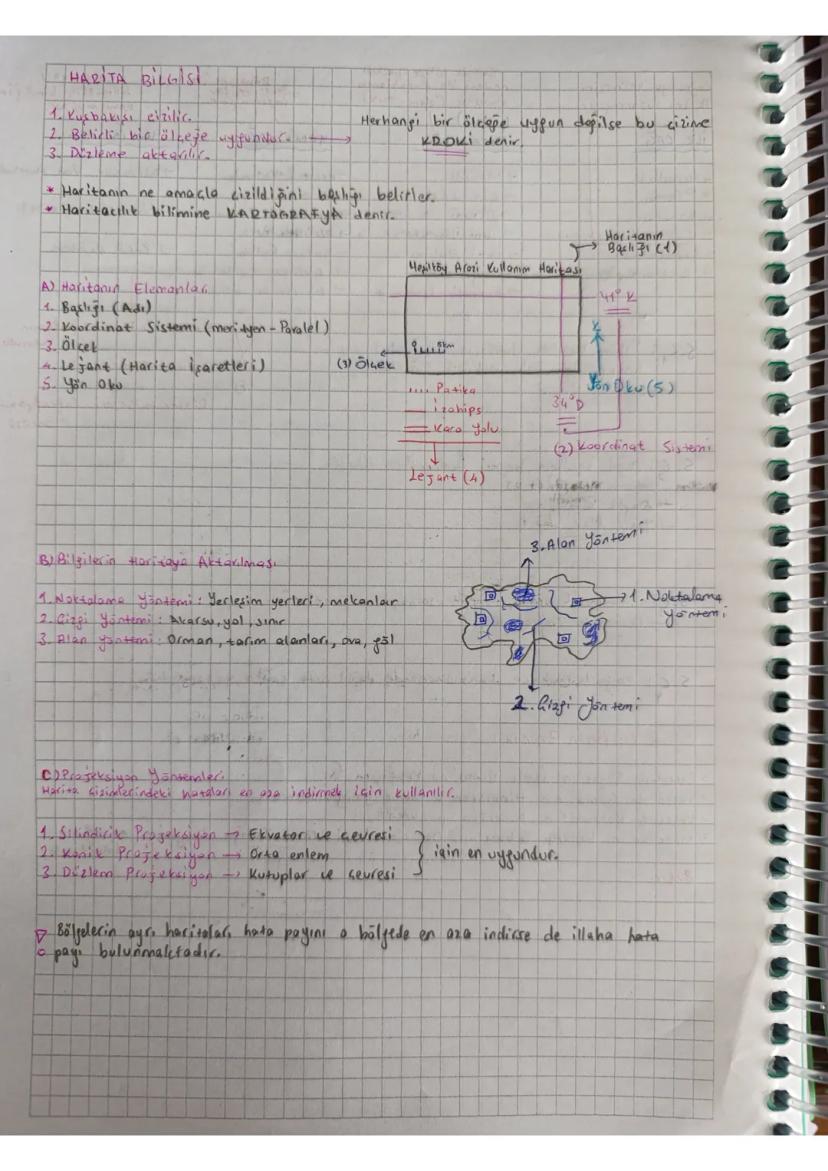 HARİTA BİLGİSİ
1. Kuşbakışı çizilir.
2. Belirli bir ölçeğe uygundur. → Herhangi bir ölçeğe uygun değilse bu çizime
KROKİ denir.
3. Düzleme aktarılır.
* Haritanın ne amaçla çizildiğini başlığı belirler.
* Haritacılık bilimine KARTOGRAFYA denir.
Haritanın
Başlığı (1)
Arazi Kullanım Haritası
A) Haritanın Elemanları
1. Başlığı (Adı)
2. Koordinat Sistemi (merityen - Paralel)
3. Ölçek
4. Lejant (Harita İşaretleri)
5. Yön Oku
41° K
K
0 5km
(3) Ölçek
Yön Oku (5)
.... Patika
— izohips
= Kara Yolu
34° D
(2) Koordinat Sistemi
Lejant (4)
B) Bilgilerin Haritaya Aktarılması
3. Alan Yöntemi
1. Noktalama Yöntemi : Yerleşim yerleri, mekanlar
2. Çizgi Yöntemi : Akarsu, yol, sınır
3. Alan Yöntemi : Orman, tarım alanları, ova, göl
1. Noktalama
yöntemi
2. Çizgi Yöntemi
C) Projeksiyon Yöntemleri
Harita çizimlerindeki hataları en aza indirmek için kullanılır.
1. Silindirik Projeksiyon → Ekvator ve çevresi
2. Konik Projeksiyon → Orta enlem
3. Düzlem Projeksiyon → Kutuplar ve çevresi
için en uygundur.
Bölgelerin ayrı haritaları, hata payını o bölgede en aza indirse de illaha hata
payı bulunmaktadır.